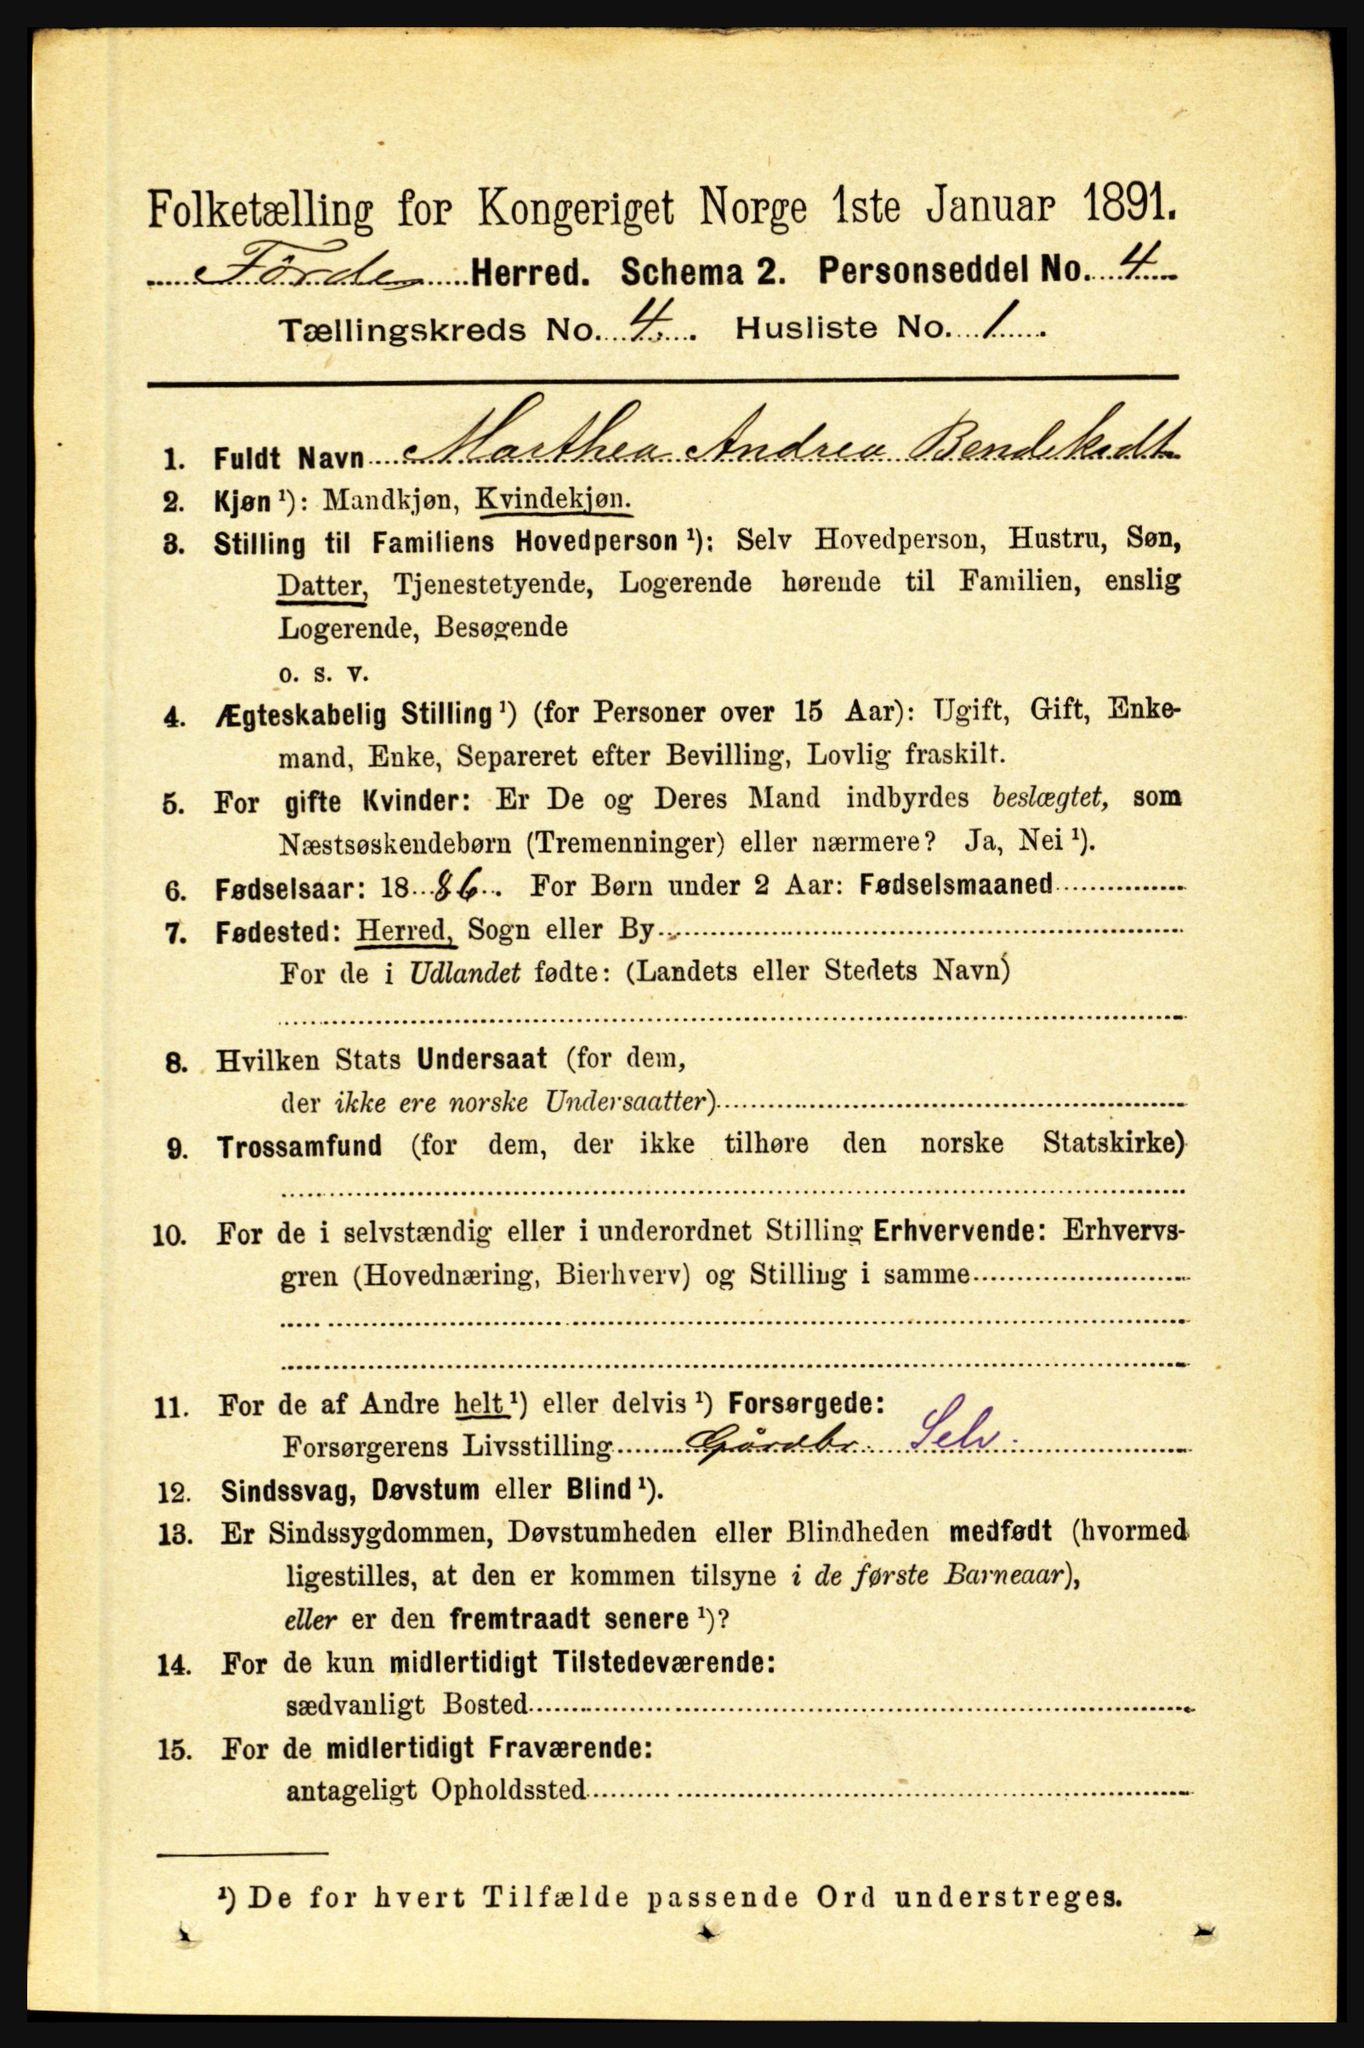 Folketælling for Kongeriget Norge 1ste Januar 1891.
Førde Herred. Schema 2. Personseddel No. 4
Tællingskreds No. 4. Husliste No. 1.
1. Fuldt Navn Marthea Andrea
2. Kjøn ¹): Mandkjøn, Kvindekjøn.
3. Stilling til Familiens Hovedperson ¹): Selv Hovedperson, Hustru, Søn,
Datter, Tjenestetyende, Logerende hørende til Familien, enslig
Logerende, Besøgende
o. s. v.
4. Ægteskabelig Stilling ¹) (for Personer over 15 Aar): Ugift, Gift, Enke-
mand, Enke, Separeret efter Bevilling, Lovlig fraskilt.
5. For gifte Kvinder: Er De og Deres Mand indbyrdes beslægtet, som
Næstsøskendebørn (Tremenninger) eller nærmere? Ja, Nei ¹).
6. Fødselsaar: 1886. For Børn under 2 Aar: Fødselsmaaned
7. Fødested: Herred, Sogn eller By
For de i Udlandet fødte: (Landets eller Stedets Navn)
8. Hvilken Stats Undersaat (for dem,
der ikke ere norske Undersaatter)
9. Trossamfund (for dem, der ikke tilhøre den norske Statskirke)
10. For de i selvstændig eller i underordnet Stilling Erhvervende: Erhvervs-
gren (Hovednæring, Bierhverv) og Stilling i samme
11. For de af Andre helt ¹) eller delvis ¹) Forsørgede:
Forsørgerens Livsstilling Gårdbr. Selv.
12. Sindssvag, Døvstum eller Blind ¹).
13. Er Sindssygdommen, Døvstumheden eller Blindheden medfødt (hvormed
ligestilles, at den er kommen tilsyne i de første Barneaar),
eller er den fremtraadt senere ¹)?
14. For de kun midlertidigt Tilstedeværende:
sædvanligt Bosted
15. For de midlertidigt Fraværende:
antageligt Opholdssted
¹) De for hvert Tilfælde passende Ord understreges.